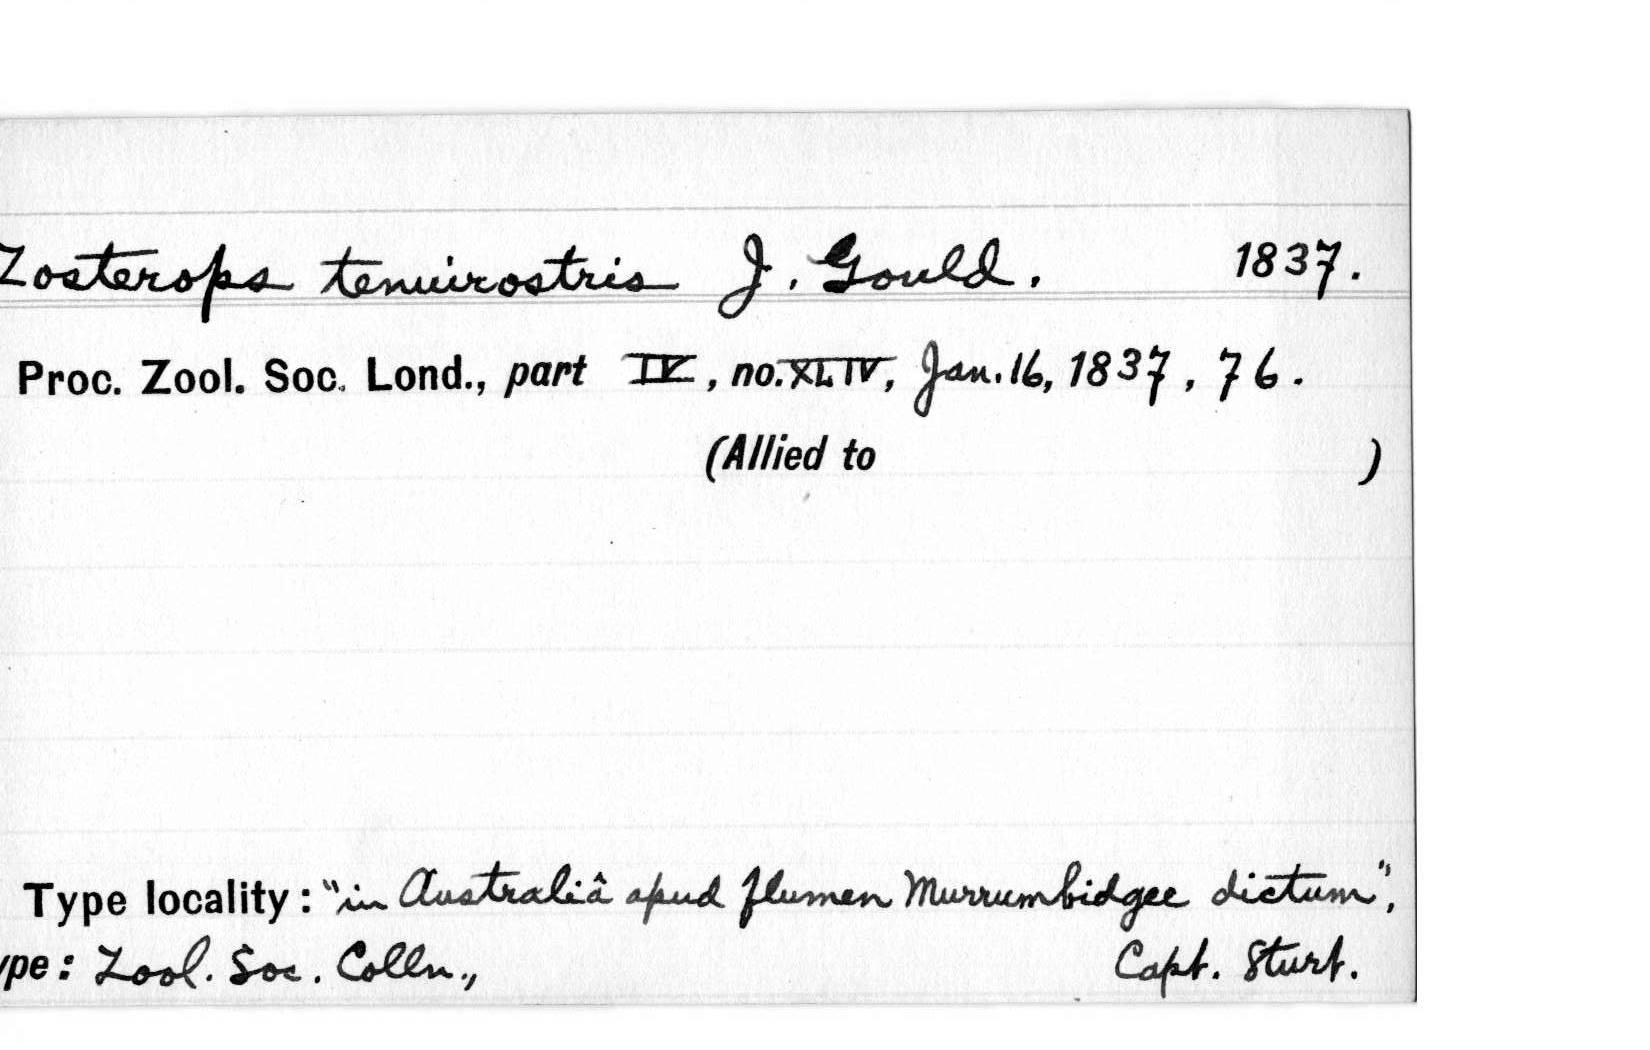 Zosterops tenuirostris J. Gould. 1837.
Proc. Zool. Soc. Lond., part IV, no. XLIV, Jan. 16, 1837, 76.
(Allied to )
Type locality: "in Australiâ apud flumen Murrumbidgee dictum",
ype: Zool. Soc. Colln., Capt. Sturt.